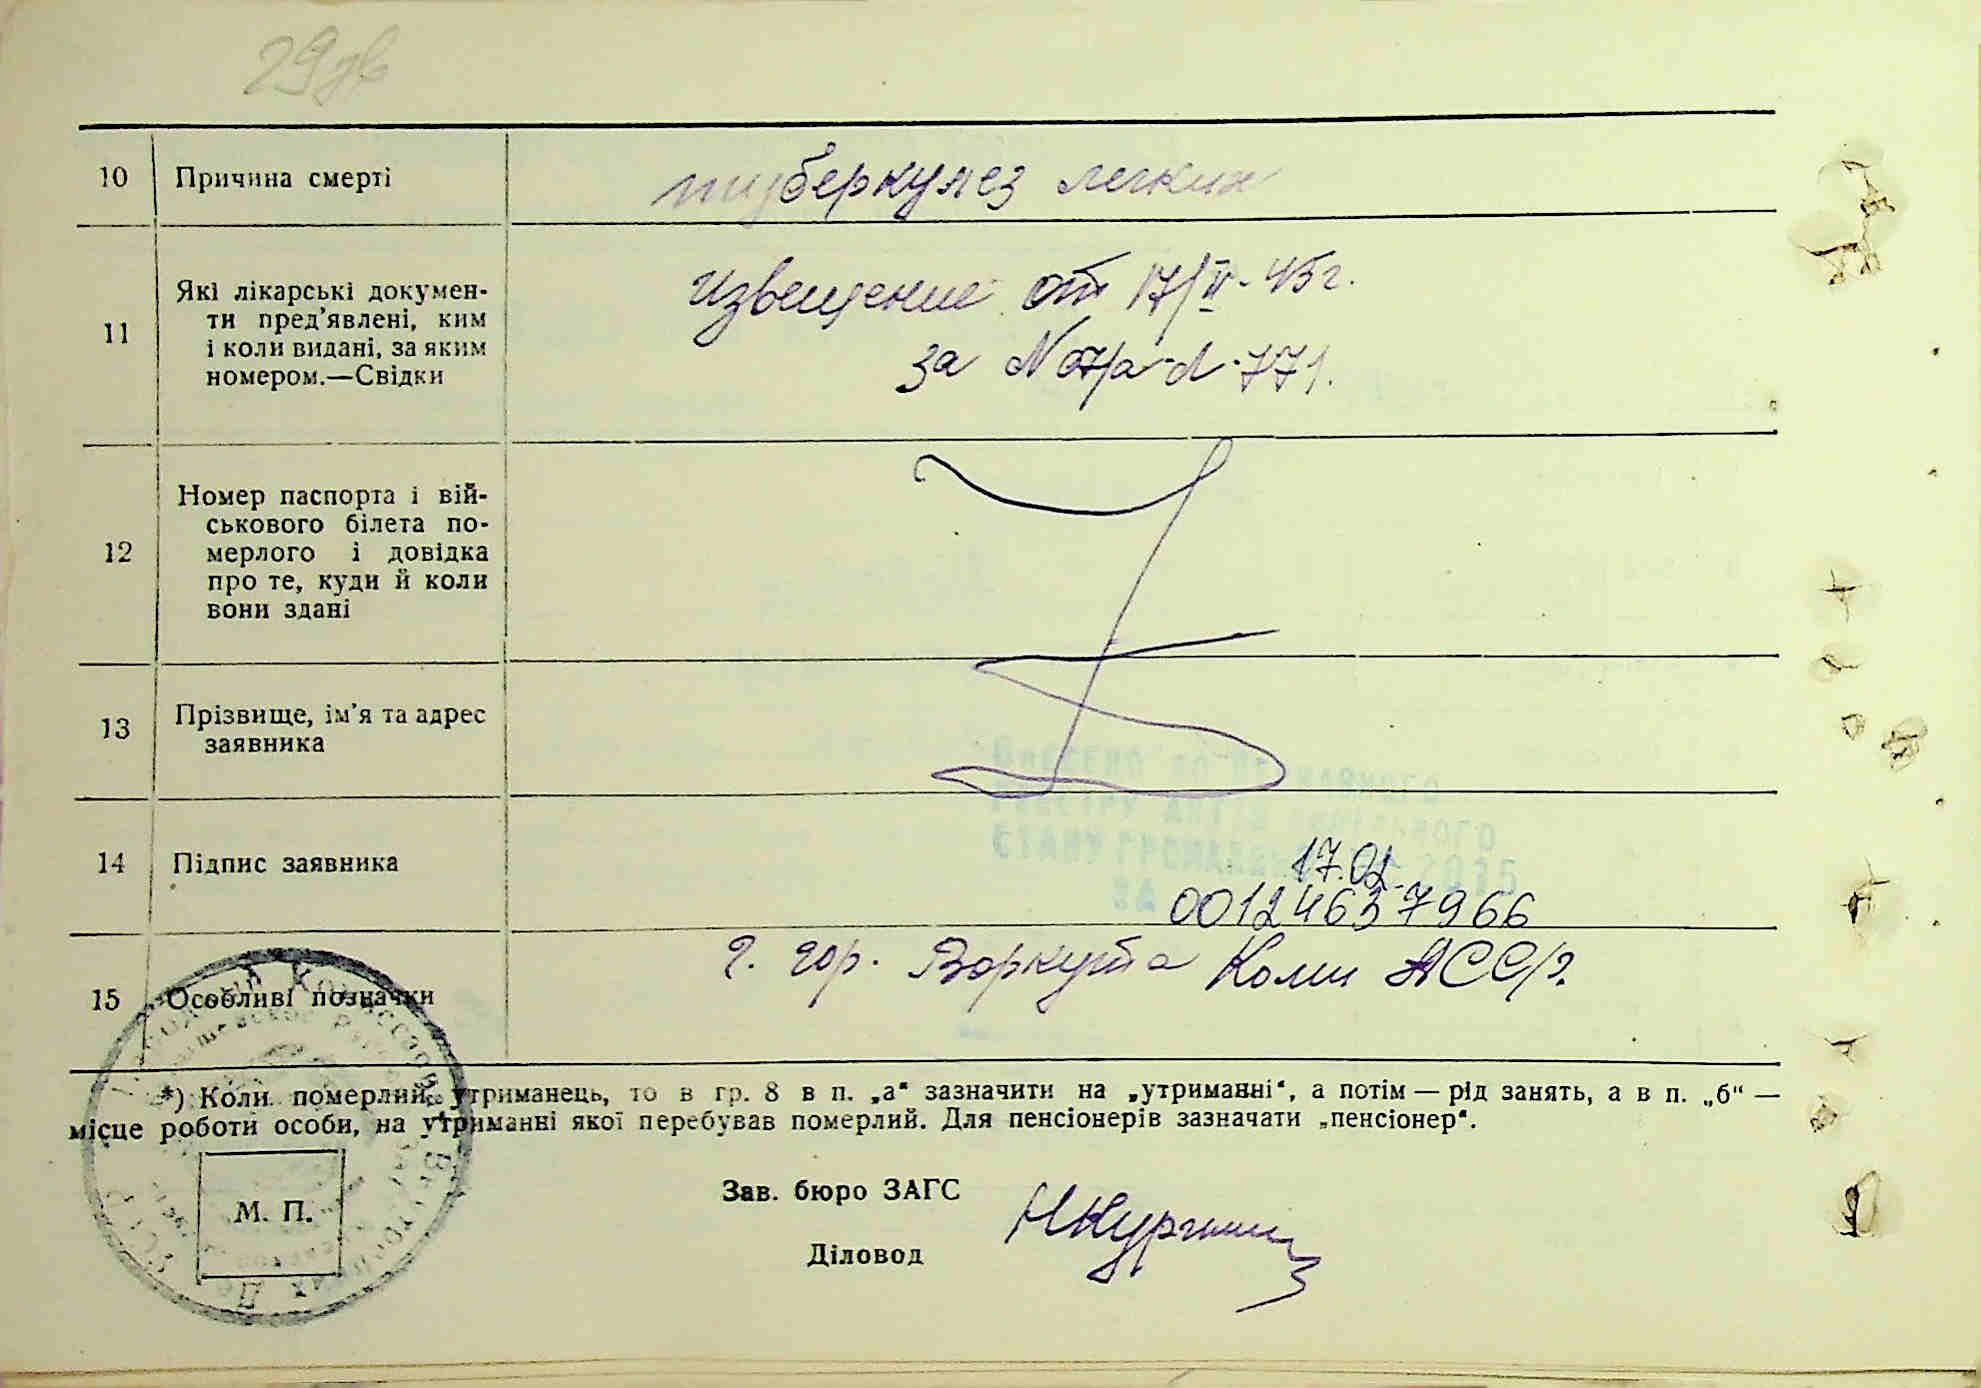 29зв
10 Причина смерті туберкулез легких
11 Які лікарські докумен-
ти пред'явлені, ким
і коли видані, за яким
номером.—Свідки
Извещение от 17/II-45г.
за №
771.
12 Номер паспорта і вій-
ськового білета по-
мерлого і довідка
про те, куди й коли
вони здані
13 Прізвище, ім'я та адрес
заявника
Внесено до Державного
реєстру актів цивільного
стану громадян 17.02. 2015
за 00124637966
14 Підпис заявника
15 Особливі позначки
г. гор. Воркута Коми АССР
*) Коли померлий утриманець, то в гр. 8 в п. „а“ зазначити на „утриманні“, а потім — рід занять, а в п. „б“ —
місце роботи особи, на утриманні якої перебував померлий. Для пенсіонерів зазначати „пенсіонер“.
М. П.
Зав. бюро ЗАГС
Діловод